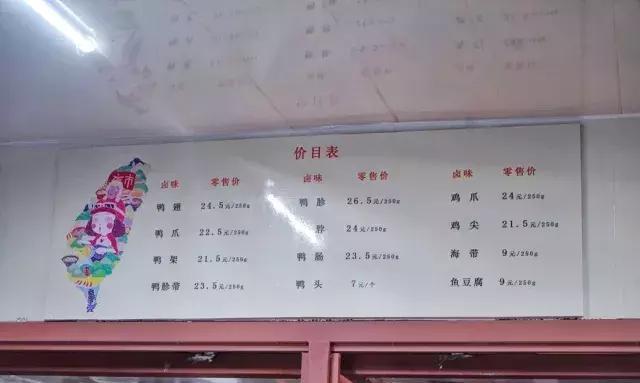 价目表
卤味 零售价
鸭翅 24.5元/250g
鸭爪 22.5元/250g
鸭架 21.5元/250g
鸭胗带 23.5元/250g
卤味 零售价
鸭胗 26.5元/250g
脖 24元/250g
鸭肠 23.5元/250g
鸭头 7元/个
卤味 零售价
鸡爪 24元/250g
鸡尖 21.5元/250g
海带 9元/250g
鱼豆腐 9元/250g